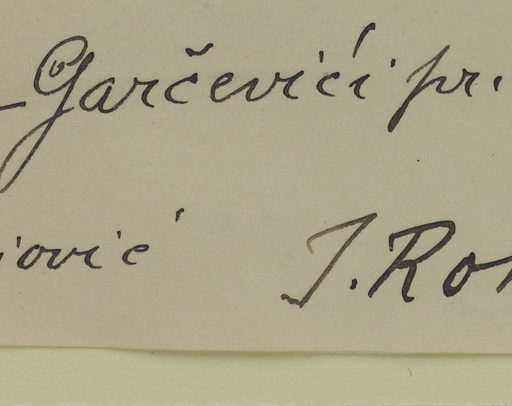 - Garčevići pr.
iović J. Ro